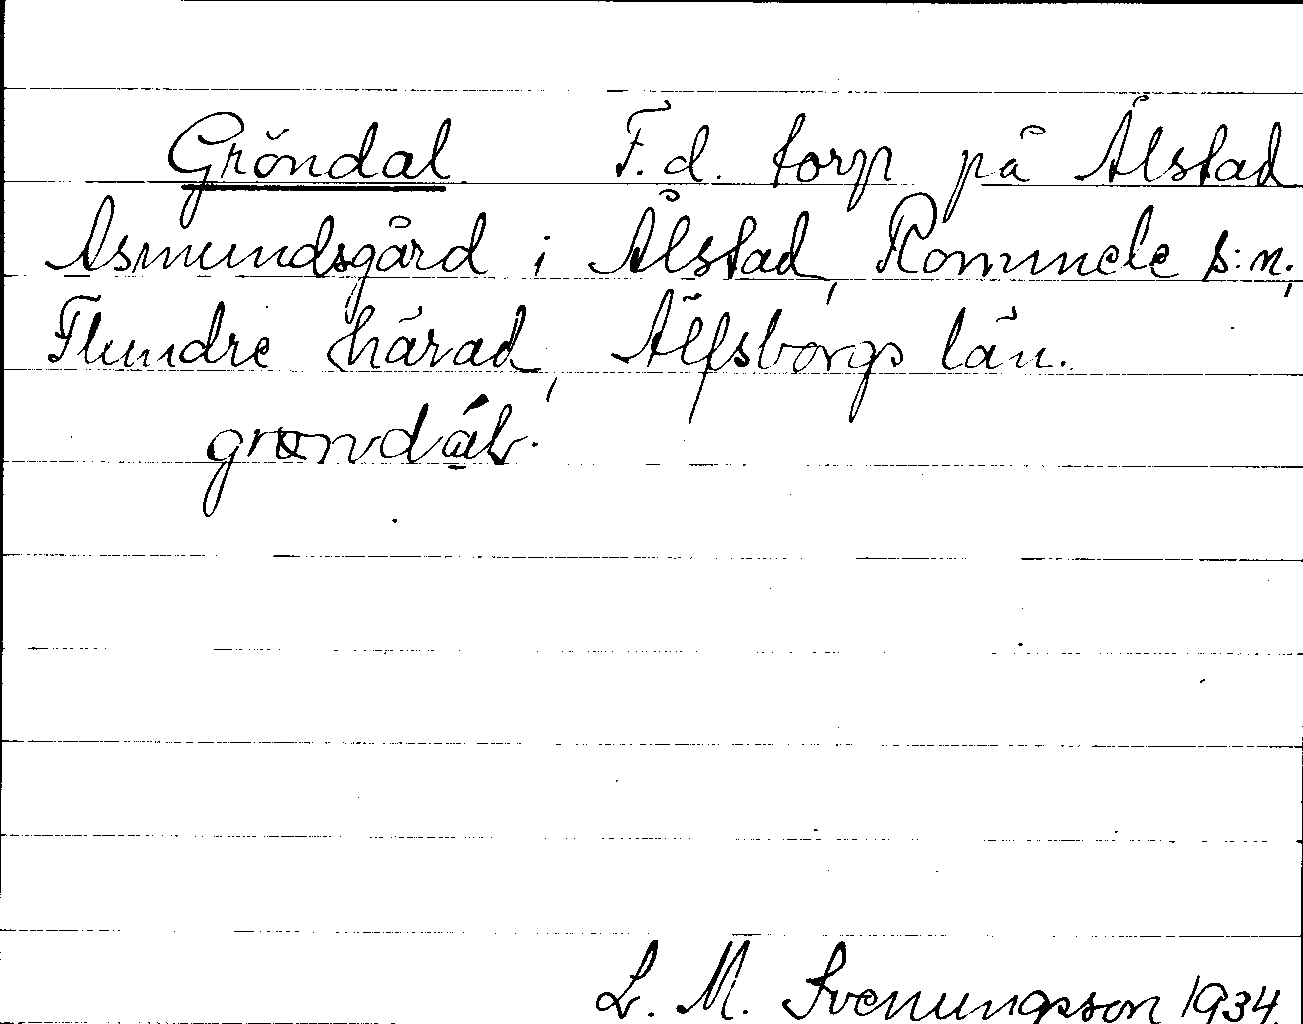 Gröndal F.d. torp på Ålstad
Asmundsgård i Ålstad, Rommele s:n;
Flundre härad, Älfsborgs län.
L. M. Svenungsson 1934.